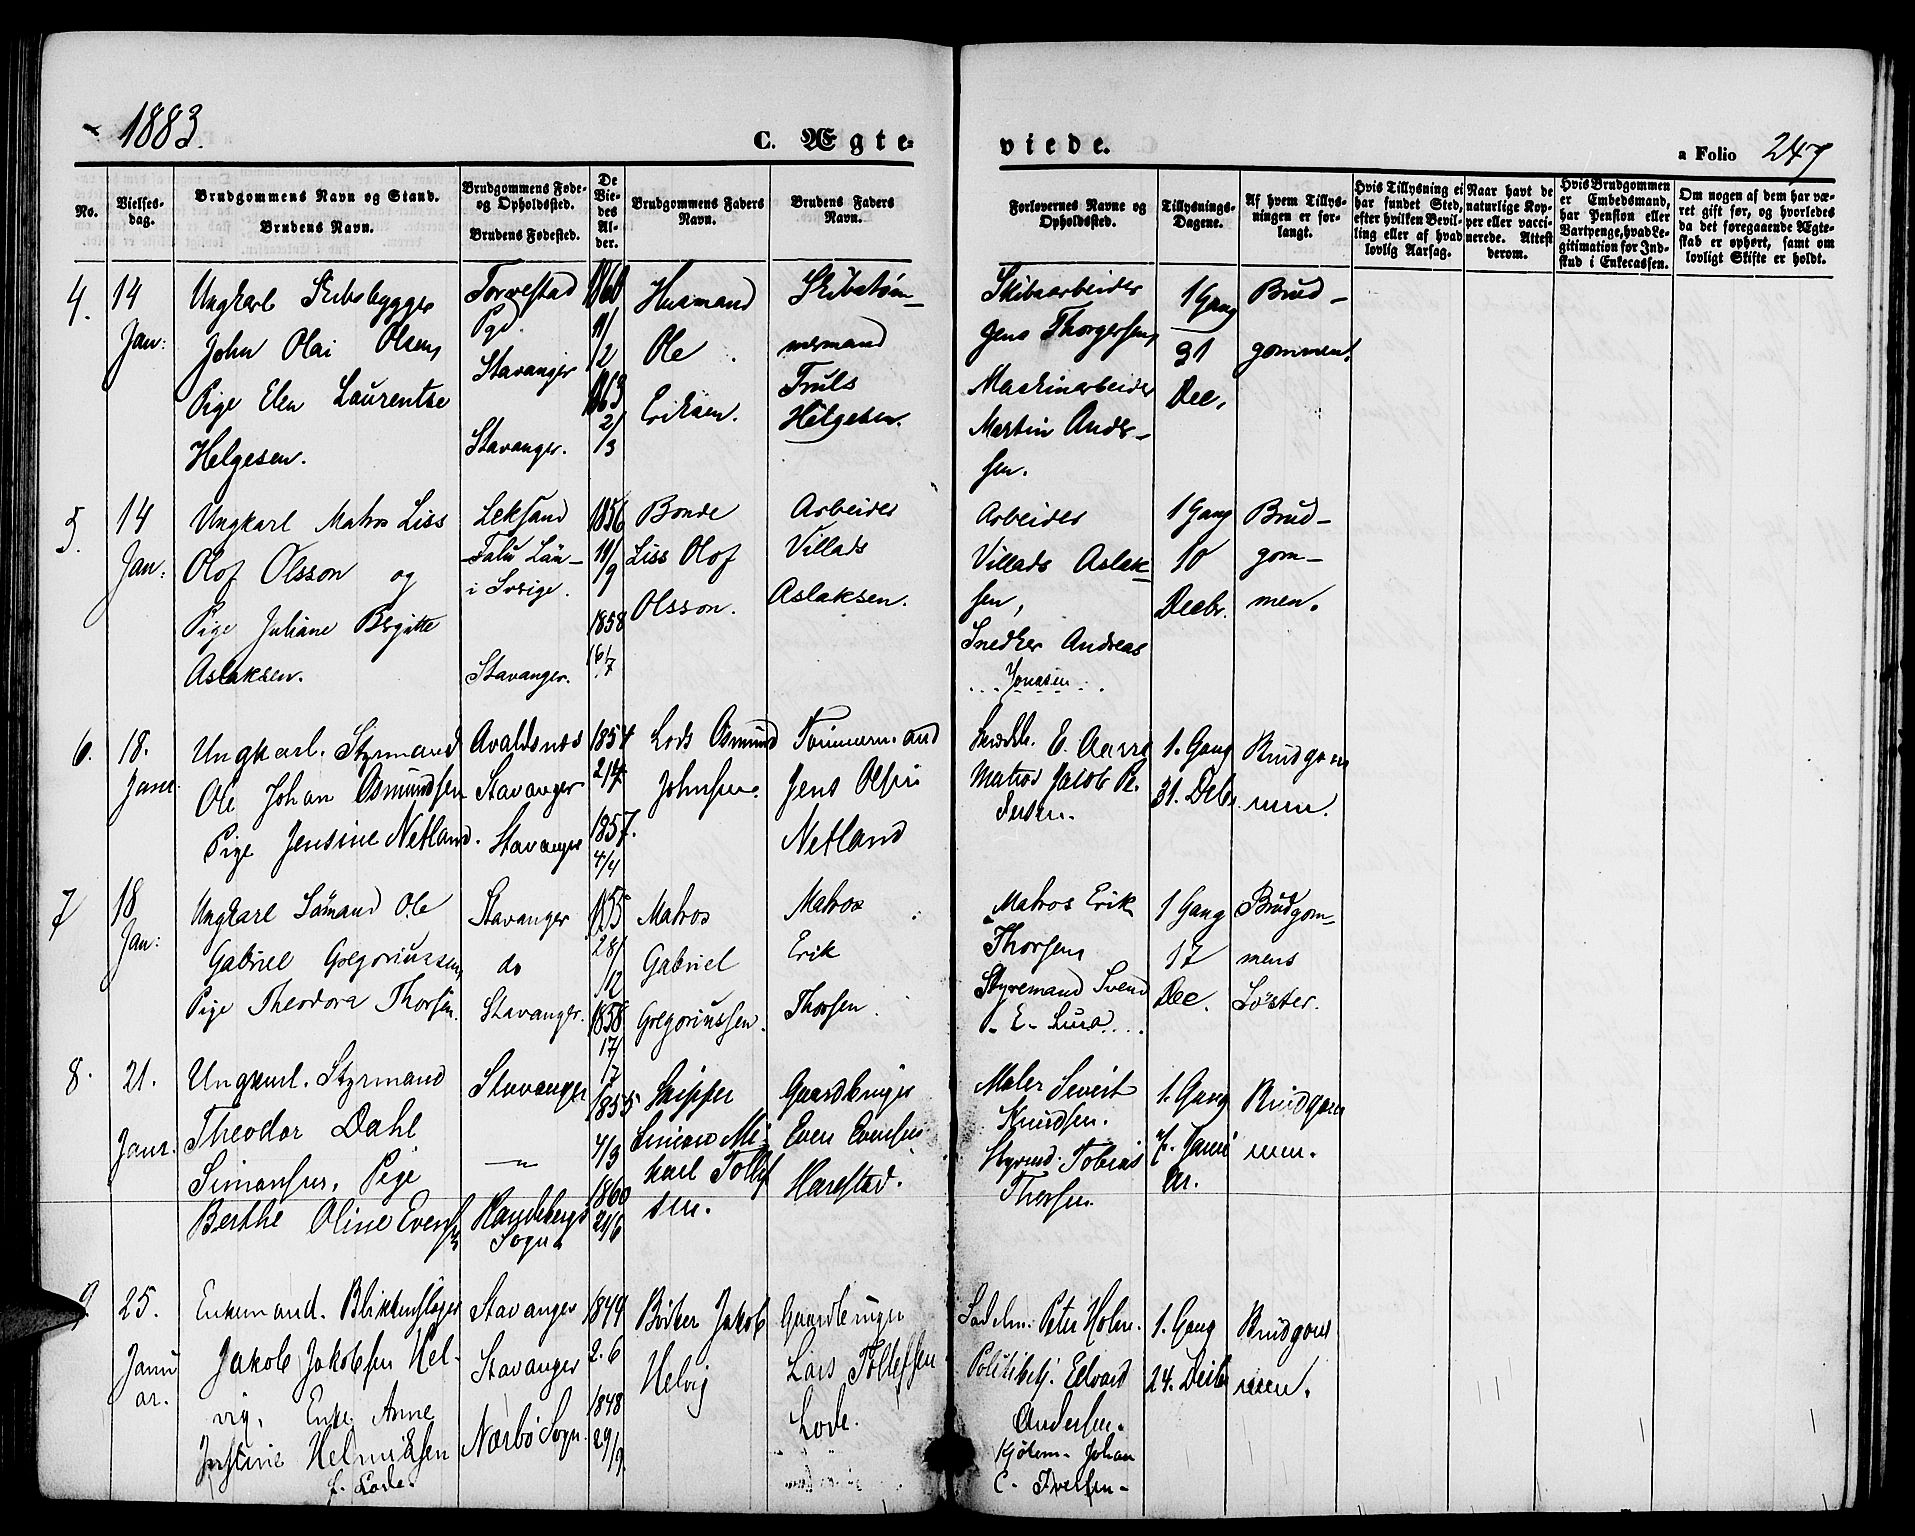 1883.
C. Ægte-
viede.
a Folio 247
No.
Vielses-
dag.
Brudgommens Navn og Stand.
Brudens Navn.
Brudgommens Føde-
og Opholdssted.
Brudens Fødested.
De
Vie-
des
Al-
der.
Brudgommens Faders
Navn.
Brudens Faders
Navn.
Forlovernes Navne og
Opholdssted.
Tillysnings-
Dagene.
Af hvem Tillys-
ningen er for-
langt.
Hvis Tillysning ei
har fundet Sted,
efter hvilken Bevil-
ling eller af hvad
lovlig Aarsag.
Naar havt de
naturlige Kop-
per eller vacci-
nerede. Attest
derom.
Hvis Brudgommen
er Embedsmand,
har Pension eller
Vartpenge, hvad Le-
gitimation for Ind-
skud i Enkecassen.
Om nogen af dem har væ-
ret gift før, og hvorledes
da det foregaaende Ægte-
skab er ophørt, samt om
lovligt Skifte er holdt.
4.
14
Jan:
Ungkarl Skibsbygger
John Olai Olsen,
Pige Elen Laurentse
Helgesen.
Torvestad
Pgd.
Stavanger
Stavanger.
1860
11/
/2
1863
2/
/3
Husmand
Ole
Eriksen.
Skibstøm-
mermand
Truls
Helgesen.
Skibsarbeider
Jens Thorgersen,
Maskinarbeider
Martin Ander-
sen.
1 Gang
31
Dec.
Brud-
gommen.
5.
14
Jan:
Ungkarl Matros Liss
Olof Olsson og
Pige Juliane Birgitte
Aslaksen.
Leksand
Falu Län-
i Sverige.
Stavanger.
1856
19/
/9
1858
16/
/7
Bonde
Liss Olof
Olsson.
Arbeider
Villads
Aslaksen.
Arbeider
Villads Aslak-
sen,
Snedker Andreas
Jonasen
1 Gang
10
Decbr.
Brud-
gom-
men.
6.
18.
Janr
Ungkarl. Styrmand
Ole Johan Osmundsen
Pige Jensine Netland.
Avaldsnes
Stavanger
Stavanger
1854
21/4
1857.
4/4
Lods Osmund
Johnsen.
Tømmermand
Jens Olsen
Netland
E.
Matros Jacob
1. Gang
31. Debr.
Brudgom
men.
7
18
Jan:
Ungkarl Sømand Ole
Gabriel Gregoriussen,
Pige Theodora Thorsen.
Stavanger
do
Stavanger.
1855
28/
/12
1858
17/
/7
Matros
Gabriel
Gregoriussen.
Matros
Erik
Thorsen
Matros Erik
Thorsen
Styremand Svend
E. Lura
1 Gang
17
Dec.
Brudgom-
mens
Søster.
8.
21.
Janr.
Ungkarl. Styrmand
Theodor Dahl
Simonsen, Pige
Berthe Oline Evens
Stavanger
–"–
Randebergs
Sogn
1855
4/3
1860
21/6
Skipper
Simon Mi-
kael Tollef
sen.
Gaardbruger
Even Evensen
Harestad.
Maler Severt
Knudsen.
Styrmd. Tobias
Thorsen.
1. Gang
7. Janu
ar.
Brudgom
men.
9.
25.
Janu
ar.
Enkemand. Blikkenslager
Jakob Jakobsen Hel-
vig, Enke Anne
Justine Helmiksen
f. Lode.
Stavanger
Stavanger
Nærbø Sogn.
1844
2.6
1848
29/9.
Bødker Jakob
Helvig
Gaardbruger
Lars Tollefsen
Lode.
Peter Holm.
Politibetj. Edvard
Andersen.
Johan
C. Iversen-
1. Gang
24. Decbr
Brudgom
men.